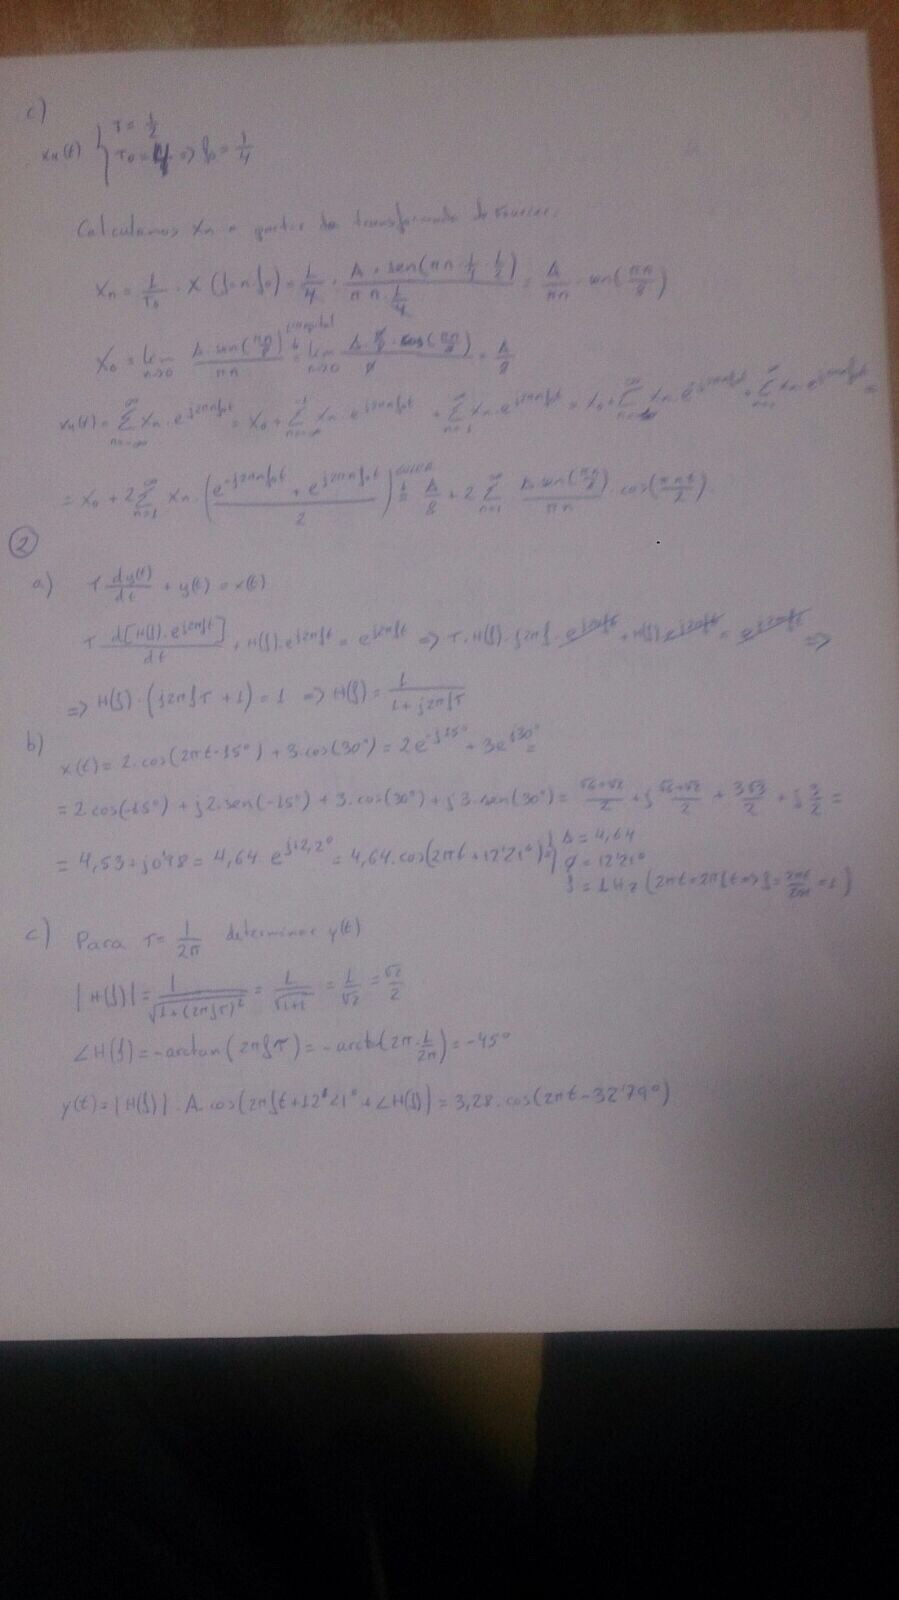 c)
x₄(t) { T = 1/2
T₀ = 4 ⇒ f₀ = 1/4
Calculamos Xn a partir de transformada de Fourier.
Xn = 1/T₀ · X(f = n·f₀) = 1/4 · (A · sen(πn · 1/4 · 1/2))/(πn · 1/4) = A/(πn) · sen(πn/8)
X₀ = lim n→0 (A·sen(πn/8))/(πn) = lim n→0 (A·π/8·cos(πn/8))/π = A/8
x₄(t) = Σ n=-∞ ^∞ Xn·e^(j2πnf₀t) = X₀ + Σ n=-∞ ^-1 Xn·e^(j2πnf₀t) + Σ n=1 ^∞ Xn·e^(j2πnf₀t) = X₀ + Σ ^∞ Xn·e^(j2πnf₀t) + Σ n=1 ^∞ Xn·e^(j2πnf₀t) =
= X₀ + 2 Σ n=1 ^∞ Xn·((e^(-j2πnf₀t) + e^(j2πnf₀t))/2) = A/8 + 2 Σ n=1 ^∞ (A·sen(πn/8))/(πn) · cos(πnt/2).
2
a) τ dy(t)/dt + y(t) = x(t)
τ d[H(f)·e^(j2πft)]/dt + H(f)·e^(j2πft) = e^(j2πft) ⇒ τ·H(f)·j2πf·e^(j2πft) + H(f)·e^(j2πft) = e^(j2πft) ⇒
⇒ H(f)·(j2πfτ + 1) = 1 ⇒ H(f) = 1/(1 + j2πfτ)
b)
x(t) = 2·cos(2πt-15°) + 3·cos(30°) = 2e^(-j15°) + 3e^(j30°) =
= 2·cos(-15°) + j2·sen(-15°) + 3·cos(30°) + j3·sen(30°) = (√6+√2)/2 + j(√6+√2)/2 + 3√3/2 + j 3/2 =
= 4,53 + j0'98 = 4,64 e^(j12,2°) = 4,64·cos(2πt + 12'21°) ⇒ { A = 4,64
φ = 12'21°
f = 1Hz (2πt = 2πft ⇒ f = 2πt/2πt = 1)
c) Para τ = 1/2π determinar y(t)
|H(f)| = 1/√(1+(2πfτ)²) = 1/√(1+1) = 1/√2 = √2/2
∠H(f) = -arctan(2πfτ) = -arctg(2π·1/2π) = -45°
y(t) = |H(f)|·A·cos(2πft + 12'21° + ∠H(f)) = 3,28·cos(2πt - 32'79°)